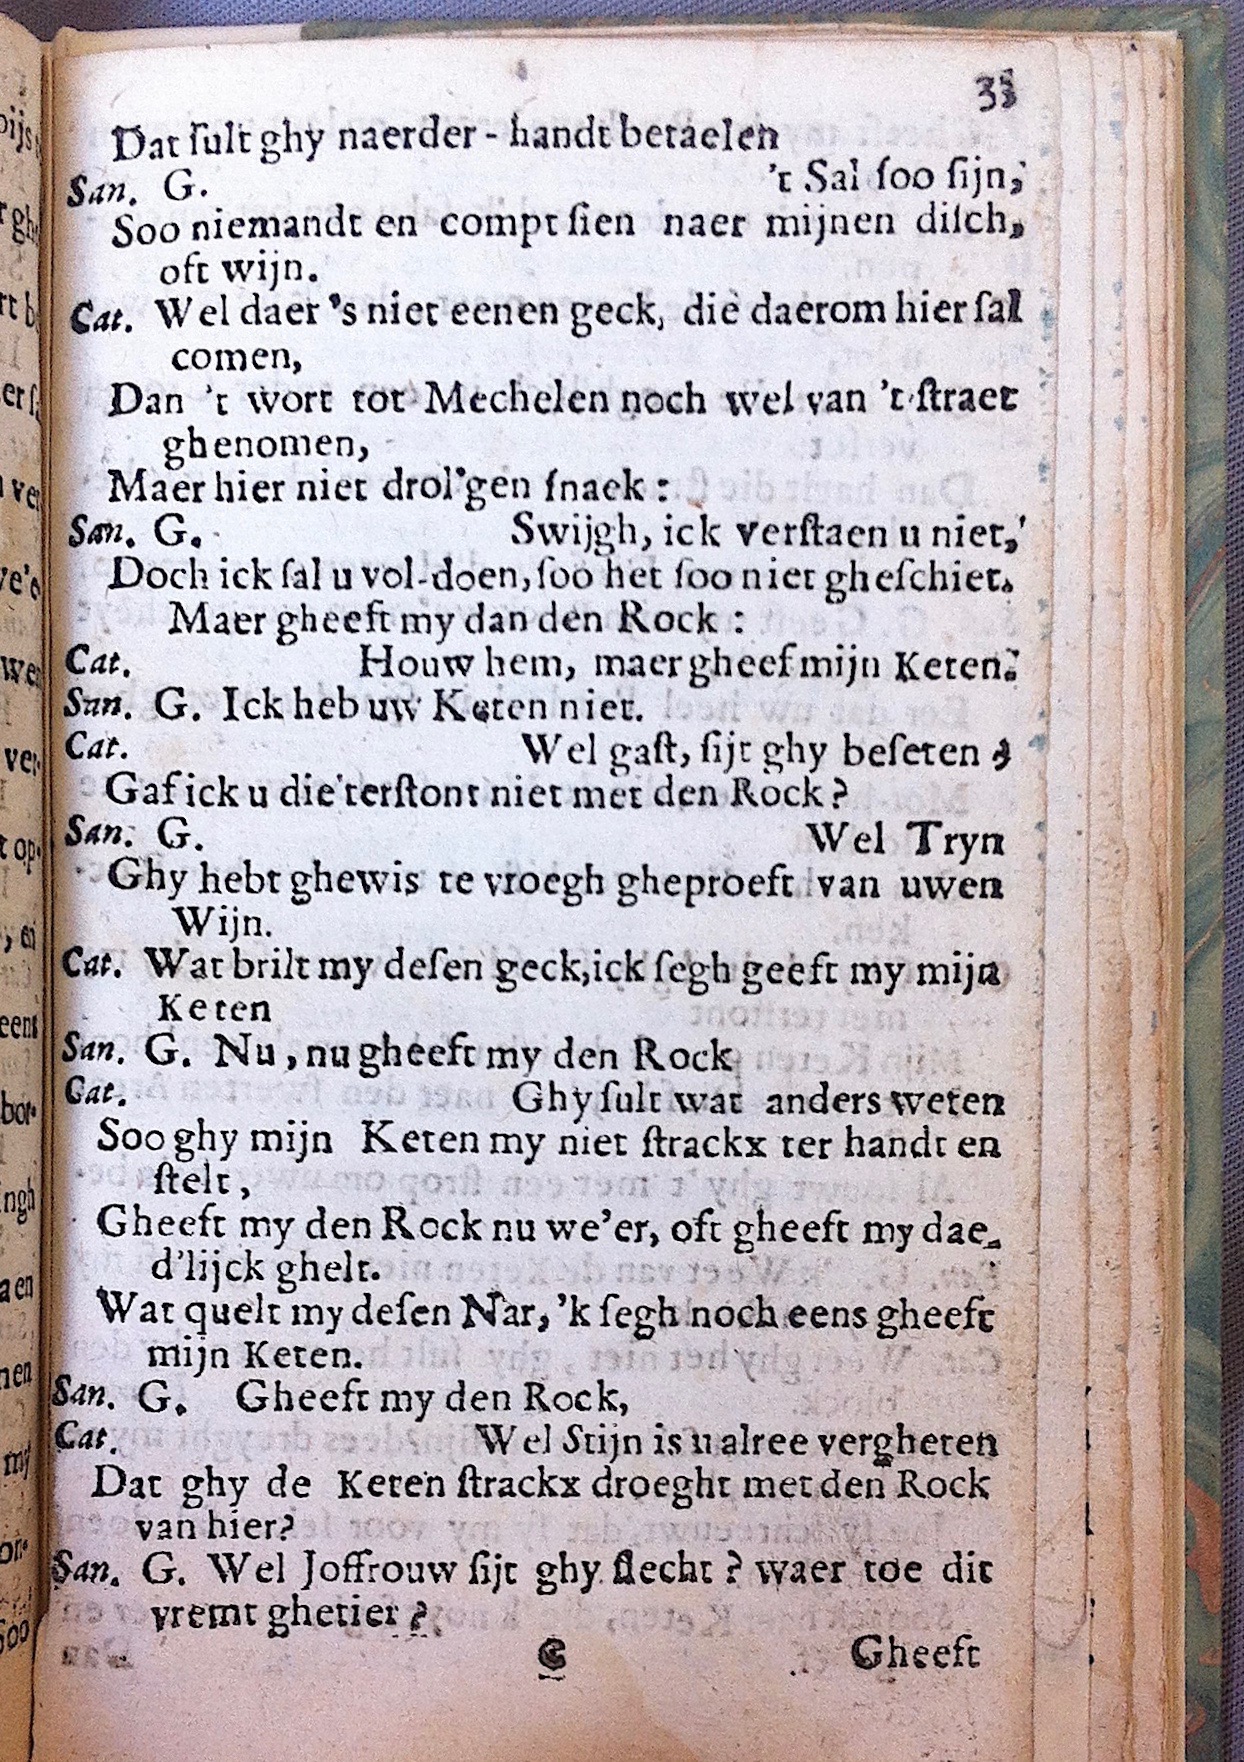 33
Dat sult ghy naerder-handt betaelen
San. G. 't Sal soo sijn,
Soo niemandt en compt sien naer mijnen disch,
oft wijn.
Cat. Wel daer 's niet eenen geck, die daerom hier sal
comen,
Dan 't wort tot Mechelen noch wel van 't straet
ghenomen,
Maer hier niet drol'gen snaek :
San. G. Swijgh, ick verstaen u niet,
Doch ick sal u vol-doen, soo het soo niet gheschiet.
Maer gheeft my dan den Rock :
Cat. Houw hem, maer gheef mijn Keten.
San. G. Ick heb uw Keten niet.
Cat. Wel gast, sijt ghy beseten ?
Gaf ick u die terstont niet met den Rock?
San. G. Wel Tryn
Ghy hebt ghewis te vroegh gheproeft van uwen
Wijn.
Cat. Wat brilt my desen geck, ick segh geeft my mijn
Keten
San. G. Nu, nu gheeft my den Rock
Cat. Ghy sult wat anders weten
Soo ghy mijn Keten my niet strackx ter handt en
stelt,
Gheeft my den Rock nu we'er, oft gheeft my dae-
d'lijck ghelt.
Wat quelt my desen Nar, 'k segh noch eens gheeft
mijn Keten.
San. G. Gheeft my den Rock,
Cat. Wel Stijn is u alree vergheten
Dat ghy de Keten strackx droeght met den Rock
van hier?
San. G. Wel Joffrouw sijt ghy slecht ? waer toe dit
vremt ghetier ?
C Gheeft